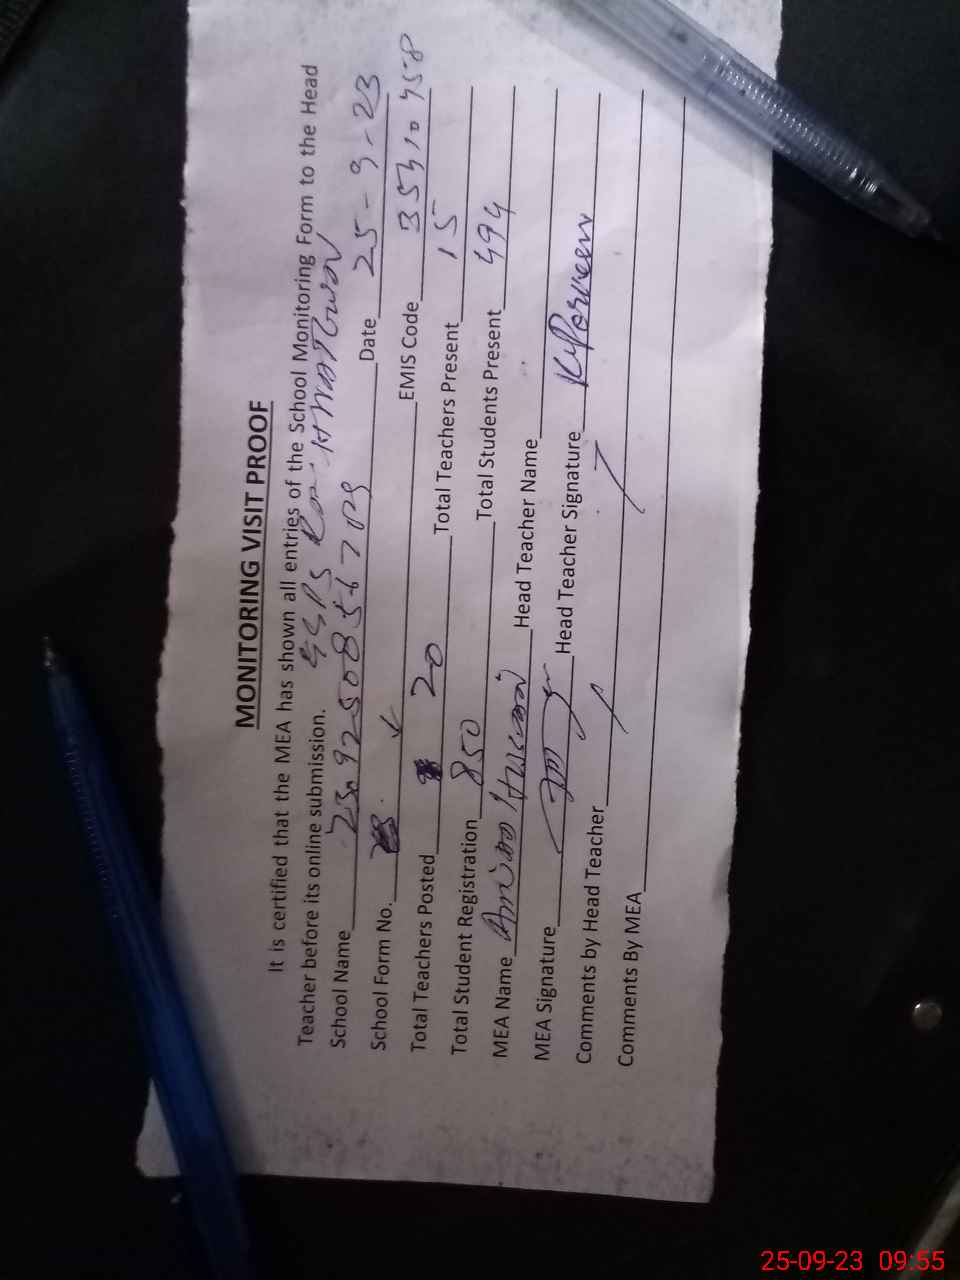 MONITORING VISIT PROOF
It is certified that the MEA has shown all entries of the School Monitoring Form to the Head
Teacher before its online submission. GGPS
School Name Date 25-9-23
School Form No. EMIS Code 35310458
Total Teachers Posted 20 Total Teachers Present 15
Total Student Registration 850 Total Students Present 494
MEA Name Hussain Head Teacher Name
MEA Signature Head Teacher Signature K Parveen
Comments by Head Teacher
Comments By MEA
25-09-23 09:55